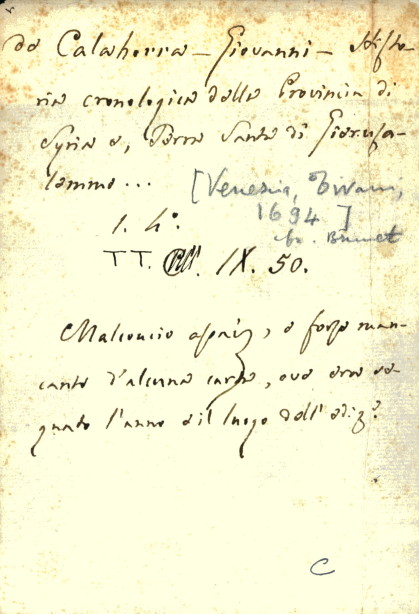 da Calahorra – Giovanni – Histo-
ria cronologica della Provincia di
Syria e, Terra Santa di Gierusa-
lemme...
[Venezia, Tivani,
1694]
br. Brunet
1. 4°.
TT. IX. 50.
Malconcio assai, e forse man-
cante d'alcuna carta, ove era se-
gnato l'anno e il luogo dell'ediz.e
C